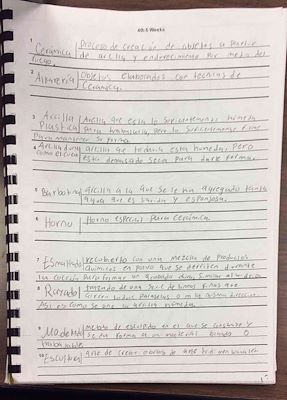 4th 6 Weeks
1 Cerámica Proceso de creación de objetos a partir
de arcilla y endurecimiento por medio del
fuego.
2 Alfarería Objetos elaborados con técnicas de
cerámica.
3 Arcilla Arcilla que está lo suficientemente húmeda
Plastica para trabajarla, pero lo suficientemente firme
para mantener su forma.
4 Arcilla dura arcilla que todavía está húmeda, pero
como el cuero está demasiado seca para darle forma.
5 Barbotina arcilla a la que se le ha agregado tanta
agua que es líquida y espanjosa.
6 Horno Horno especial para cerámica.
7 Esmaltado recubierto con una mezcla de productos
químicos en polvo que se derriten durante
la cocción para formar un acabado duro, similar al vidrio
8 Rayado trazado de una serie de líneas finas que
corren todas paralelas o en la misma dirección.
Así es como se une la arcilla húmeda.
9 Modelado metodo de esculpido en el que se construye y
se da forma a un material blando o
trabajable.
10 Escultura arte de crear obras de arte